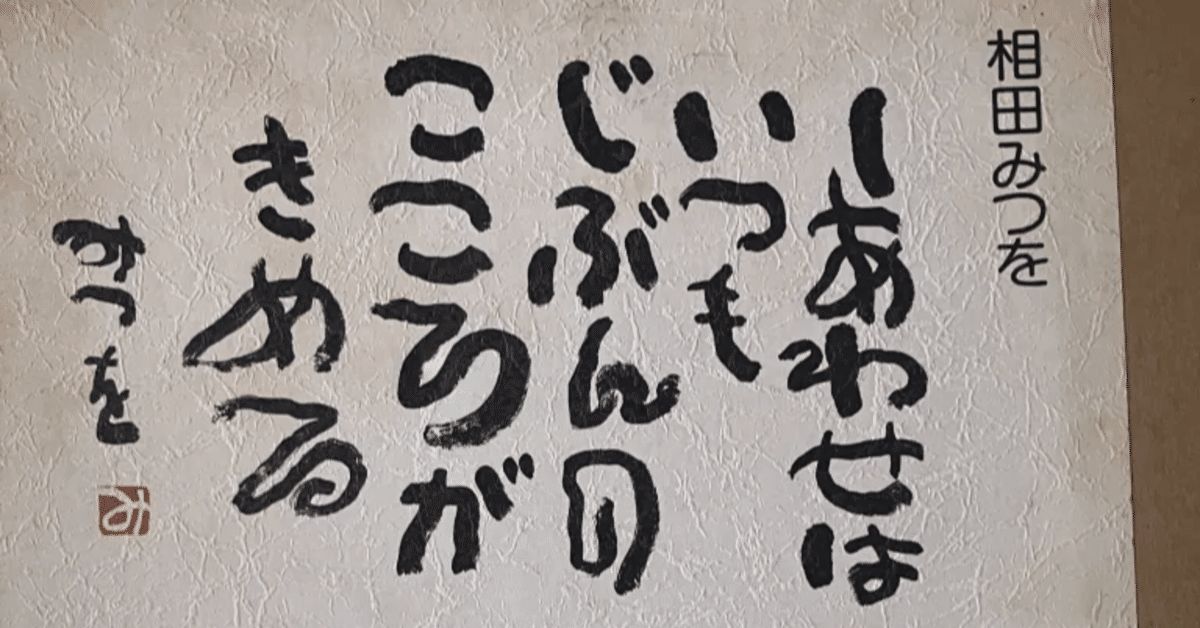 相田みつを
しあわせは
いつも
じぶんの
こころが
きめる
みつを
み